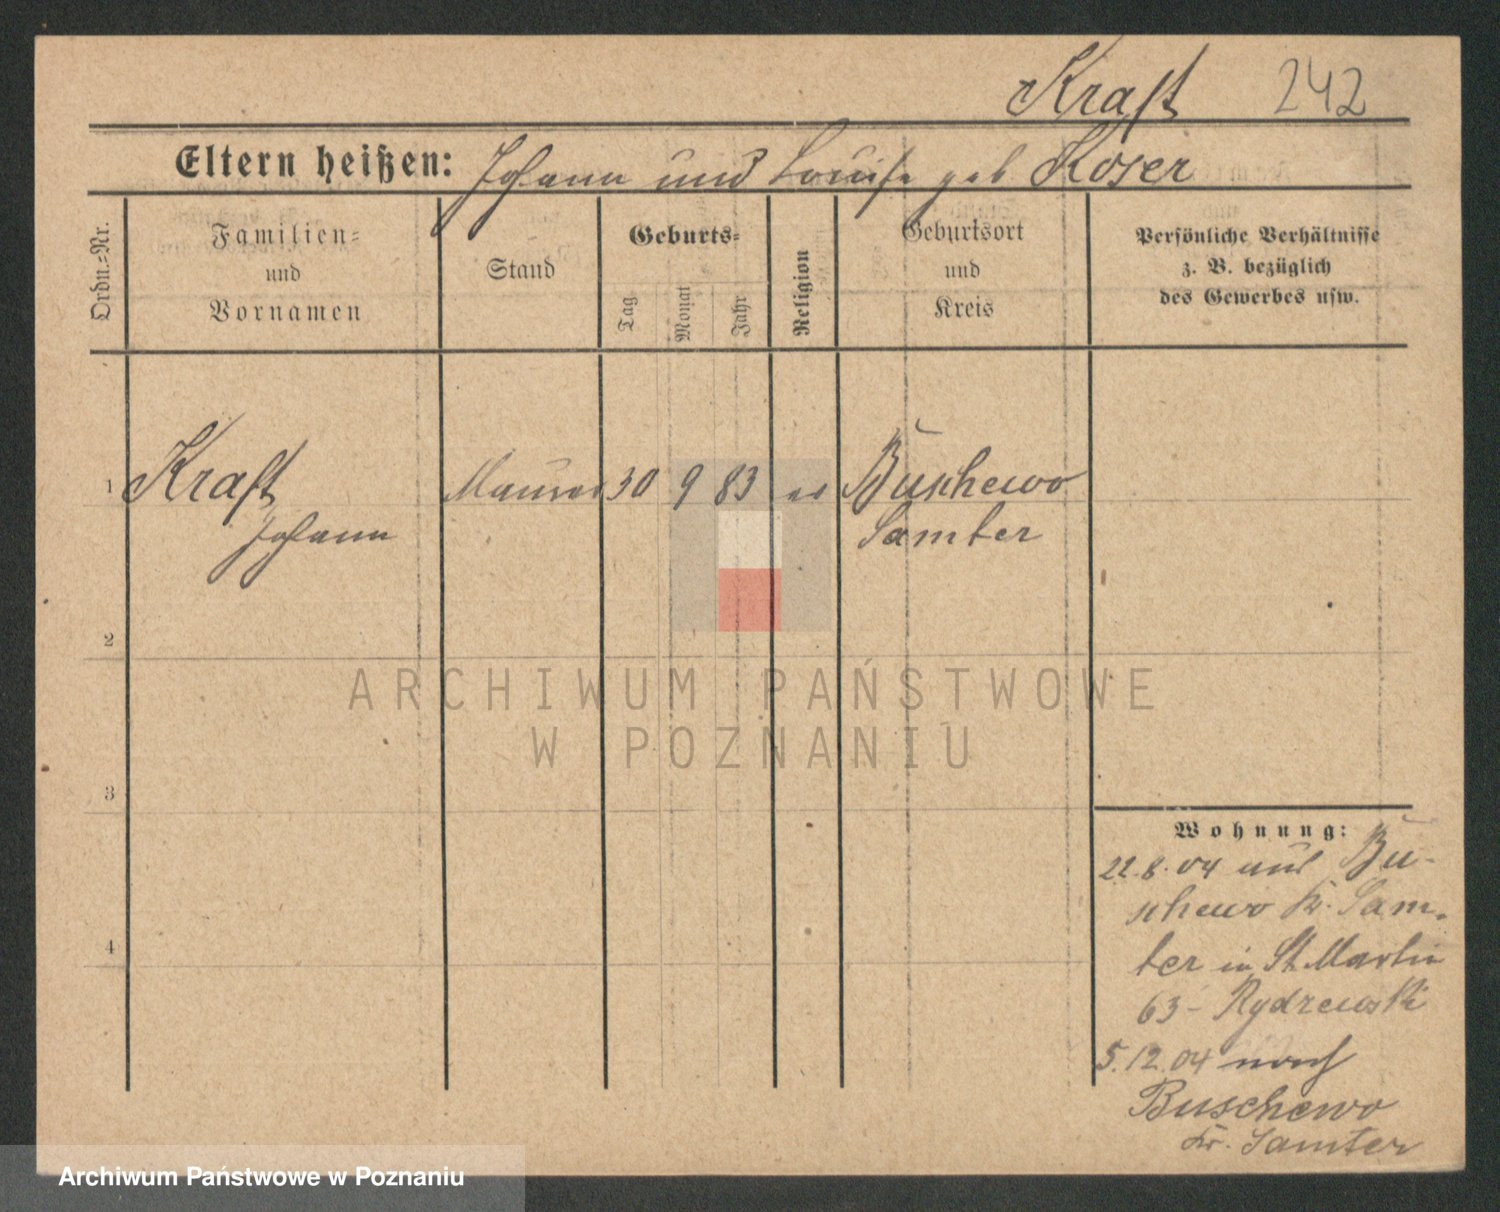 Kraft 242
Eltern heißen: Johann und Louise geb Koser
Ordn.-Nr.
Familien-
und
Vornamen
Stand
Geburts-
Tag
Monat
Jahr
Religion
Geburtsort
und
Kreis
Persönliche Verhältnisse
z. B. bezüglich
des Gewerbes usw.
1 Kraft Maurer 30 9 83 ev Buschewo
Johann Samter
2
ARCHIWUM PAŃSTWOWE
W POZNANIU
3
Wohnung:
22.8.04 aus Bu-
schewo Kr. Sam-
4
ter in St. Martin
63 - Rydzewski
5.12.04 nach
Buschewo
Kr. Samter
Archiwum Państwowe w Poznaniu